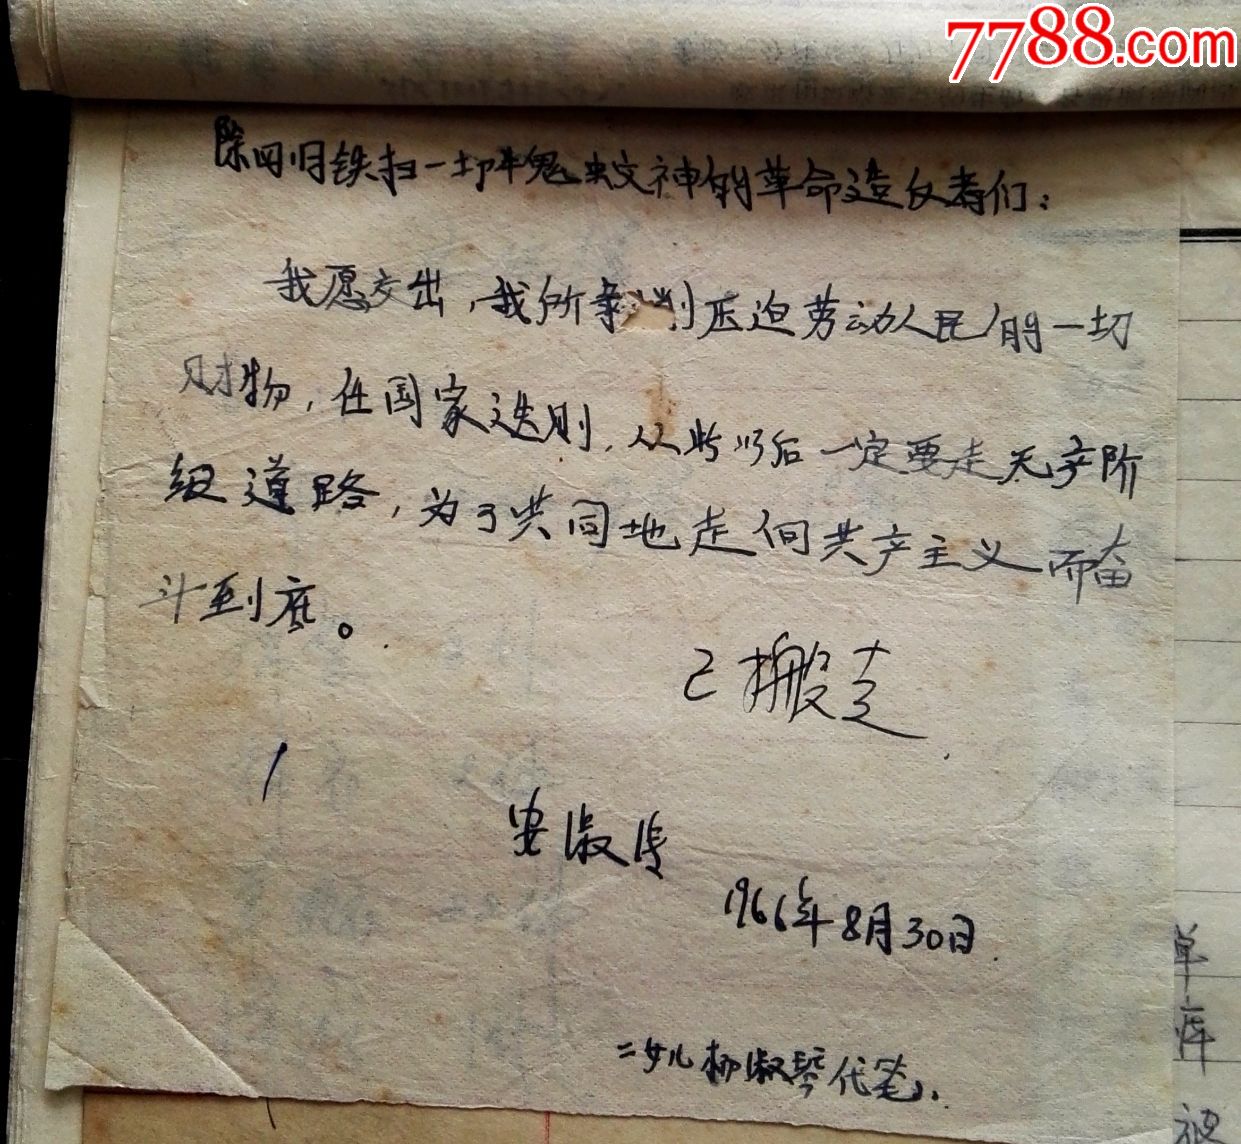 7788.com
除四旧铁扫一切牛鬼蛇神的革命造反者们：
我愿交出，我所剥压迫劳动人民的一切
财物，任国家选则，从此以后一定要走无产阶
级道路，为了共同地走向共产主义而奋
斗到底。
已搬走
安淑
1966年8月30日
二女儿柳淑琴代笔
单
库
被